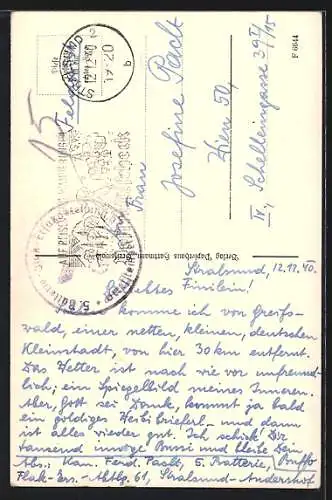 STRALSUND 2
12.12.40 17-20
b
Feldpost
Frau
Josefine Pacht
Wien 50,
IV, Schelleingasse 39
F 6644
Stralsund, 12.12.40.
Geliebtes Finilein!
komme ich von Greifs-
wald, einer netten, kleinen, deutschen
Kleinstadt, von hier 30 km entfernt.
Das Wetter ist nach wie vor unfreund-
lich; ein Spiegelbild meines Inneren.
Aber, Gott sei Dank, kommt ja bald
ein goldiges Weibibrieferl – und dann
ist alles wieder gut. Ich schick Dir
tausend innige Pounsi und bleibe Dein
Abs.: Kan. Ferd. Pacht, 5. Batterie,
Flak-Ers.-Abtlg. 61, Stralsund-Andershof